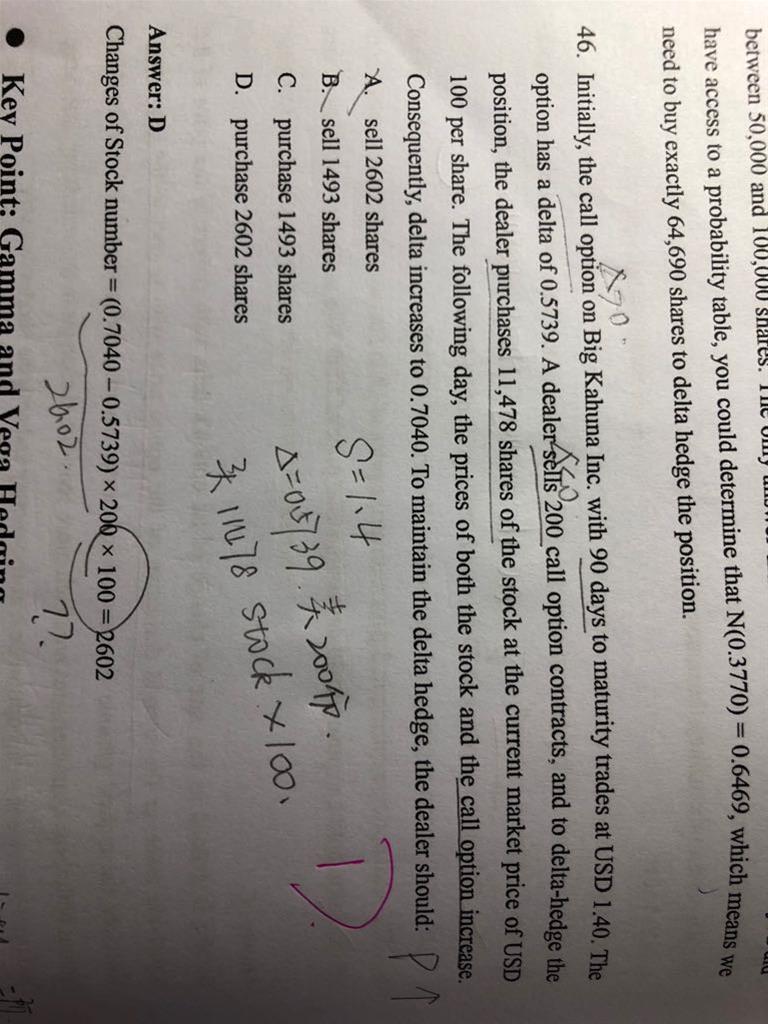 between 50,000 and 100,000 shares. The only
have access to a probability table, you could determine that N(0.3770) = 0.6469, which means we
need to buy exactly 64,690 shares to delta hedge the position.
Δ>0.
46. Initially, the call option on Big Kahuna Inc. with 90 days to maturity trades at USD 1.40. The
option has a delta of 0.5739. A dealer sells 200 call option contracts, and to delta-hedge the
position, the dealer purchases 11,478 shares of the stock at the current market price of USD
100 per share. The following day, the prices of both the stock and the call option increase.
Consequently, delta increases to 0.7040. To maintain the delta hedge, the dealer should: P↑
A. sell 2602 shares
B. sell 1493 shares
C. purchase 1493 shares
D. purchase 2602 shares
S=1.4
Δ=0.5739. 卖200份.
买 11478 stock × 100.
D.
Answer: D
Changes of Stock number = (0.7040 – 0.5739) × 200 × 100 = 2602
2602. ??
● Key Point: Gamma and Vega Hedging